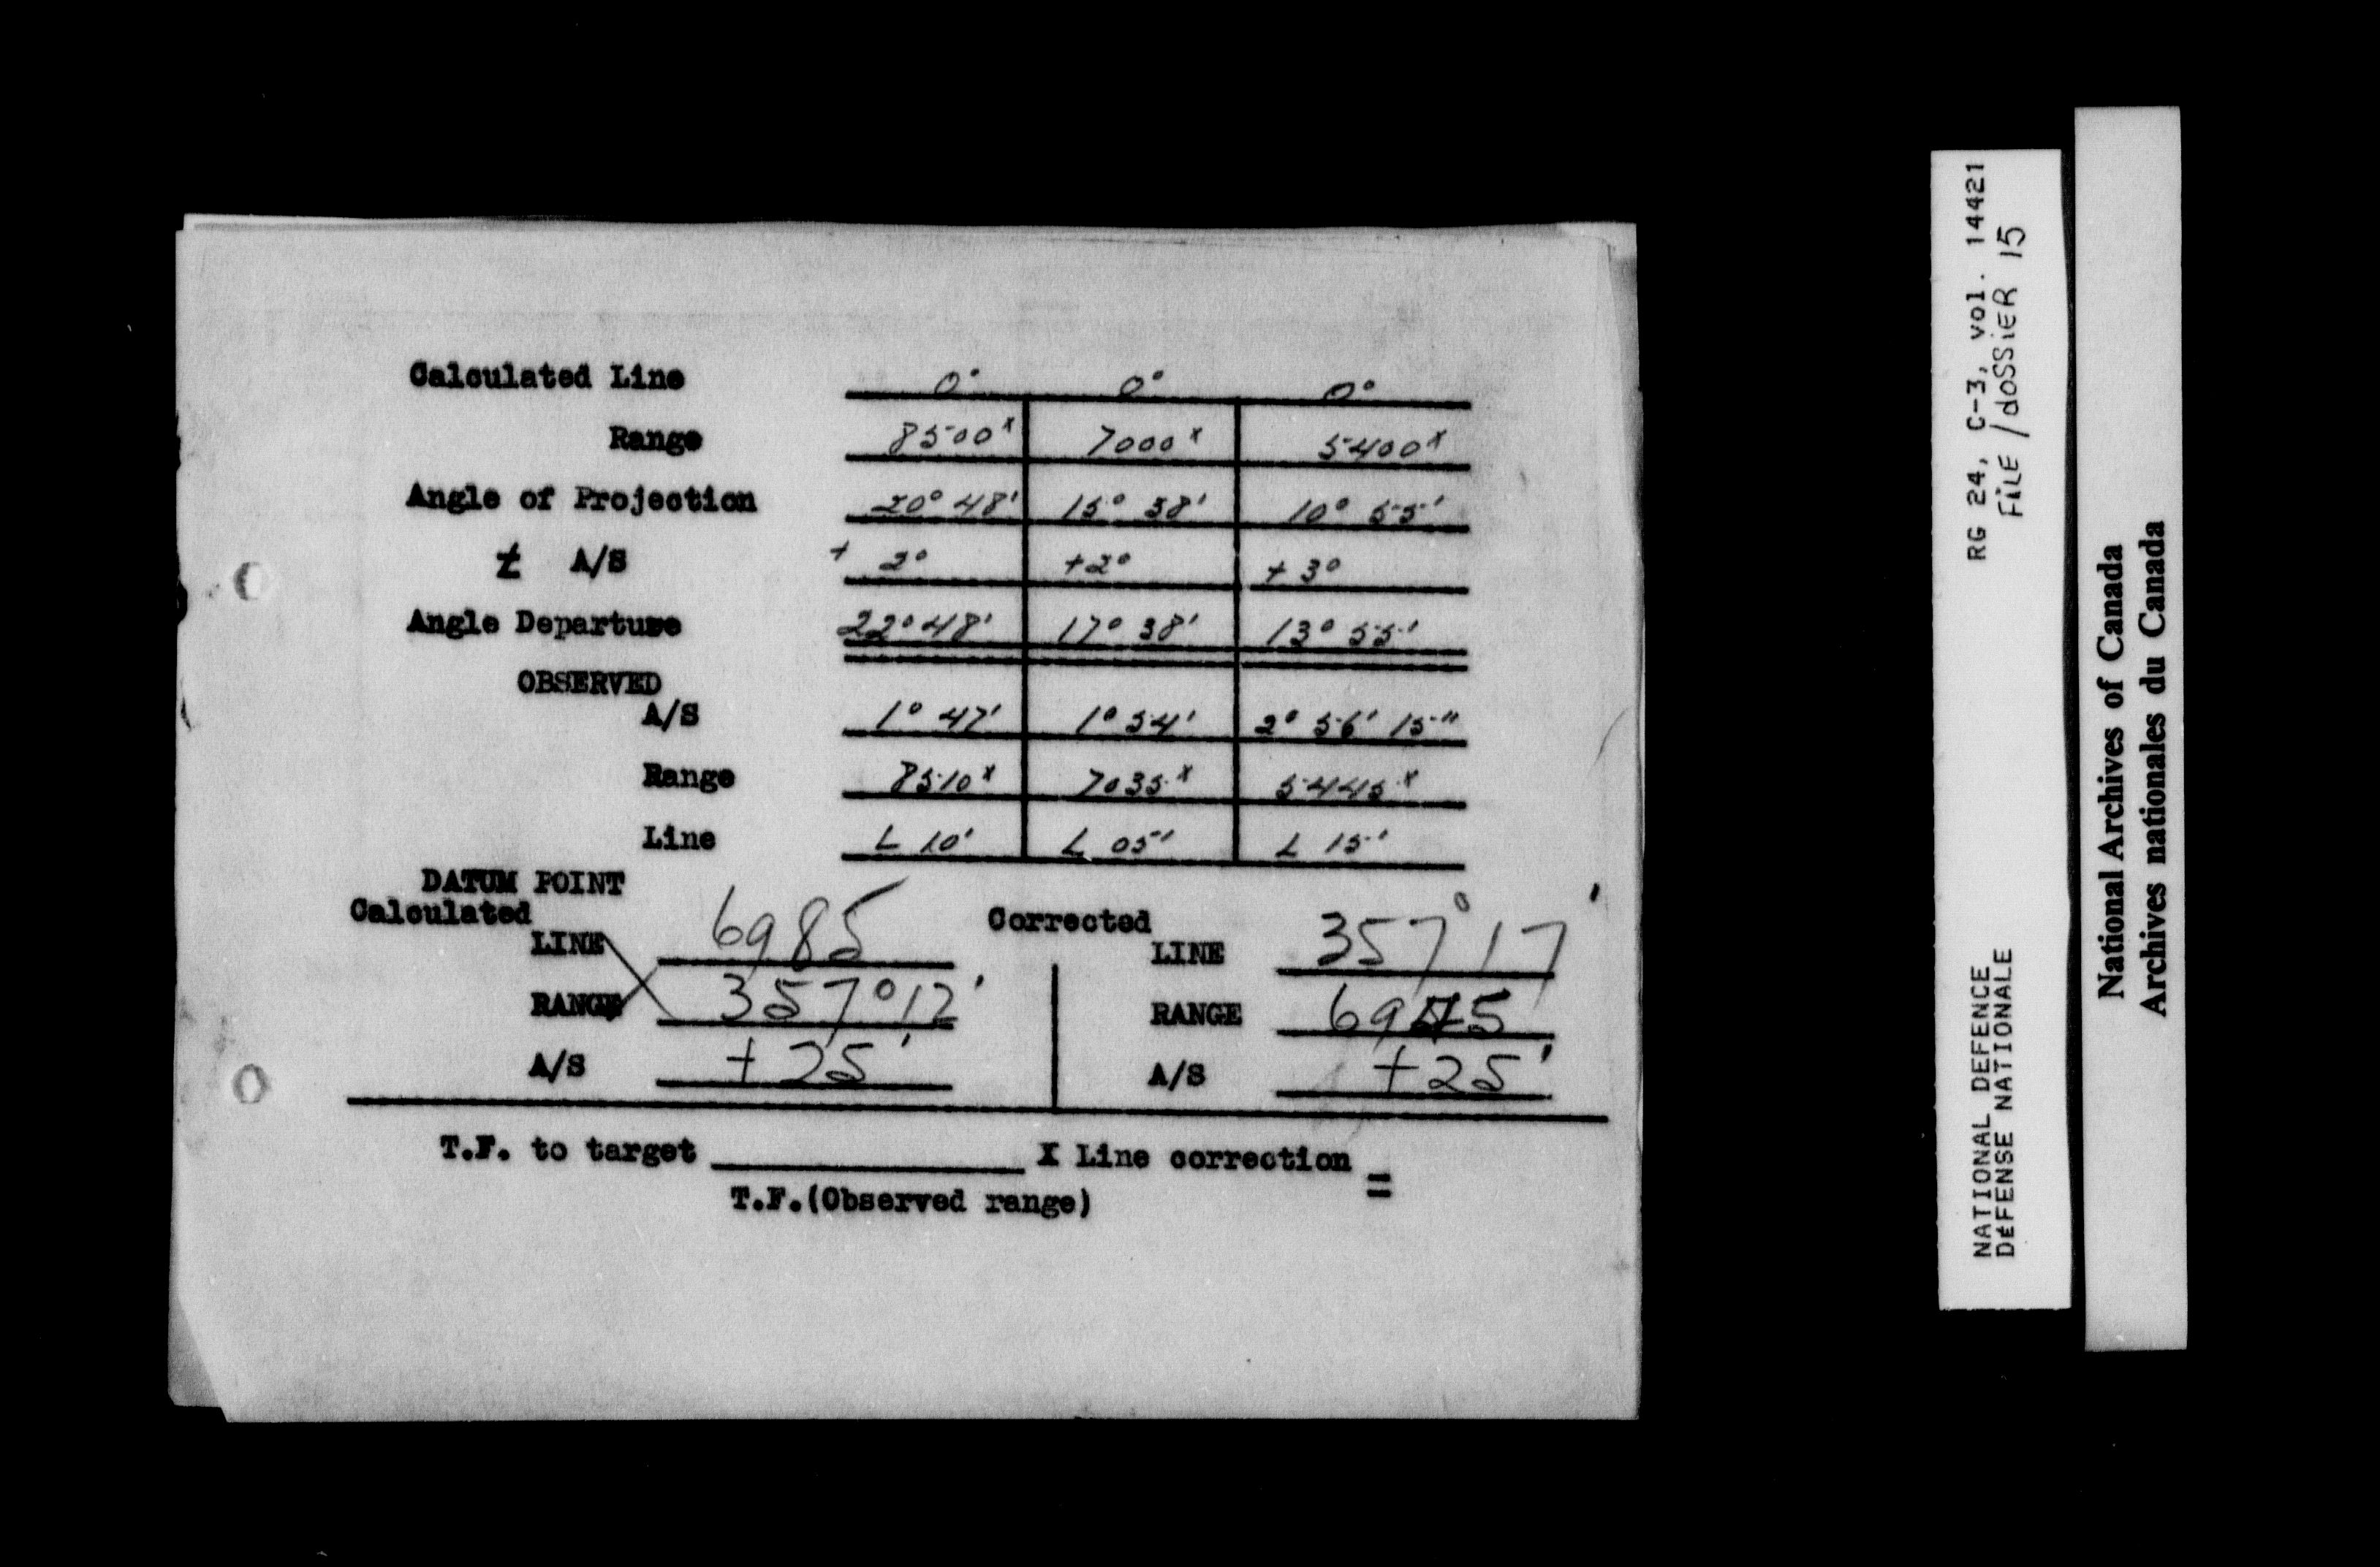 Calculated Line 0° 0° 0°
Range 8500x 7000x 5400x
Angle of Projection 20° 48' 15° 38' 10° 55'
± A/S + 2° +2° + 3°
Angle Departure 22° 48' 17° 38' 13° 55'
OBSERVED
A/S 1° 47' 1° 54' 2° 56' 15"
Range 8510x 7035x 5445x
Line L 10' L 05' L 15'
DATUM POINT
Calculated Corrected
LINE 6985 LINE 357° 17'
RANGE 357° 12' RANGE
A/S + 25' A/S + 25'
T.F. to target X Line correction =
T.F.(Observed range)
RG 24, C-3, vol. 14421
FILE / dOSSiER 15
NATIONAL DEFENCE
DéFENSE NATIONALE
National Archives of Canada
Archives nationales du Canada